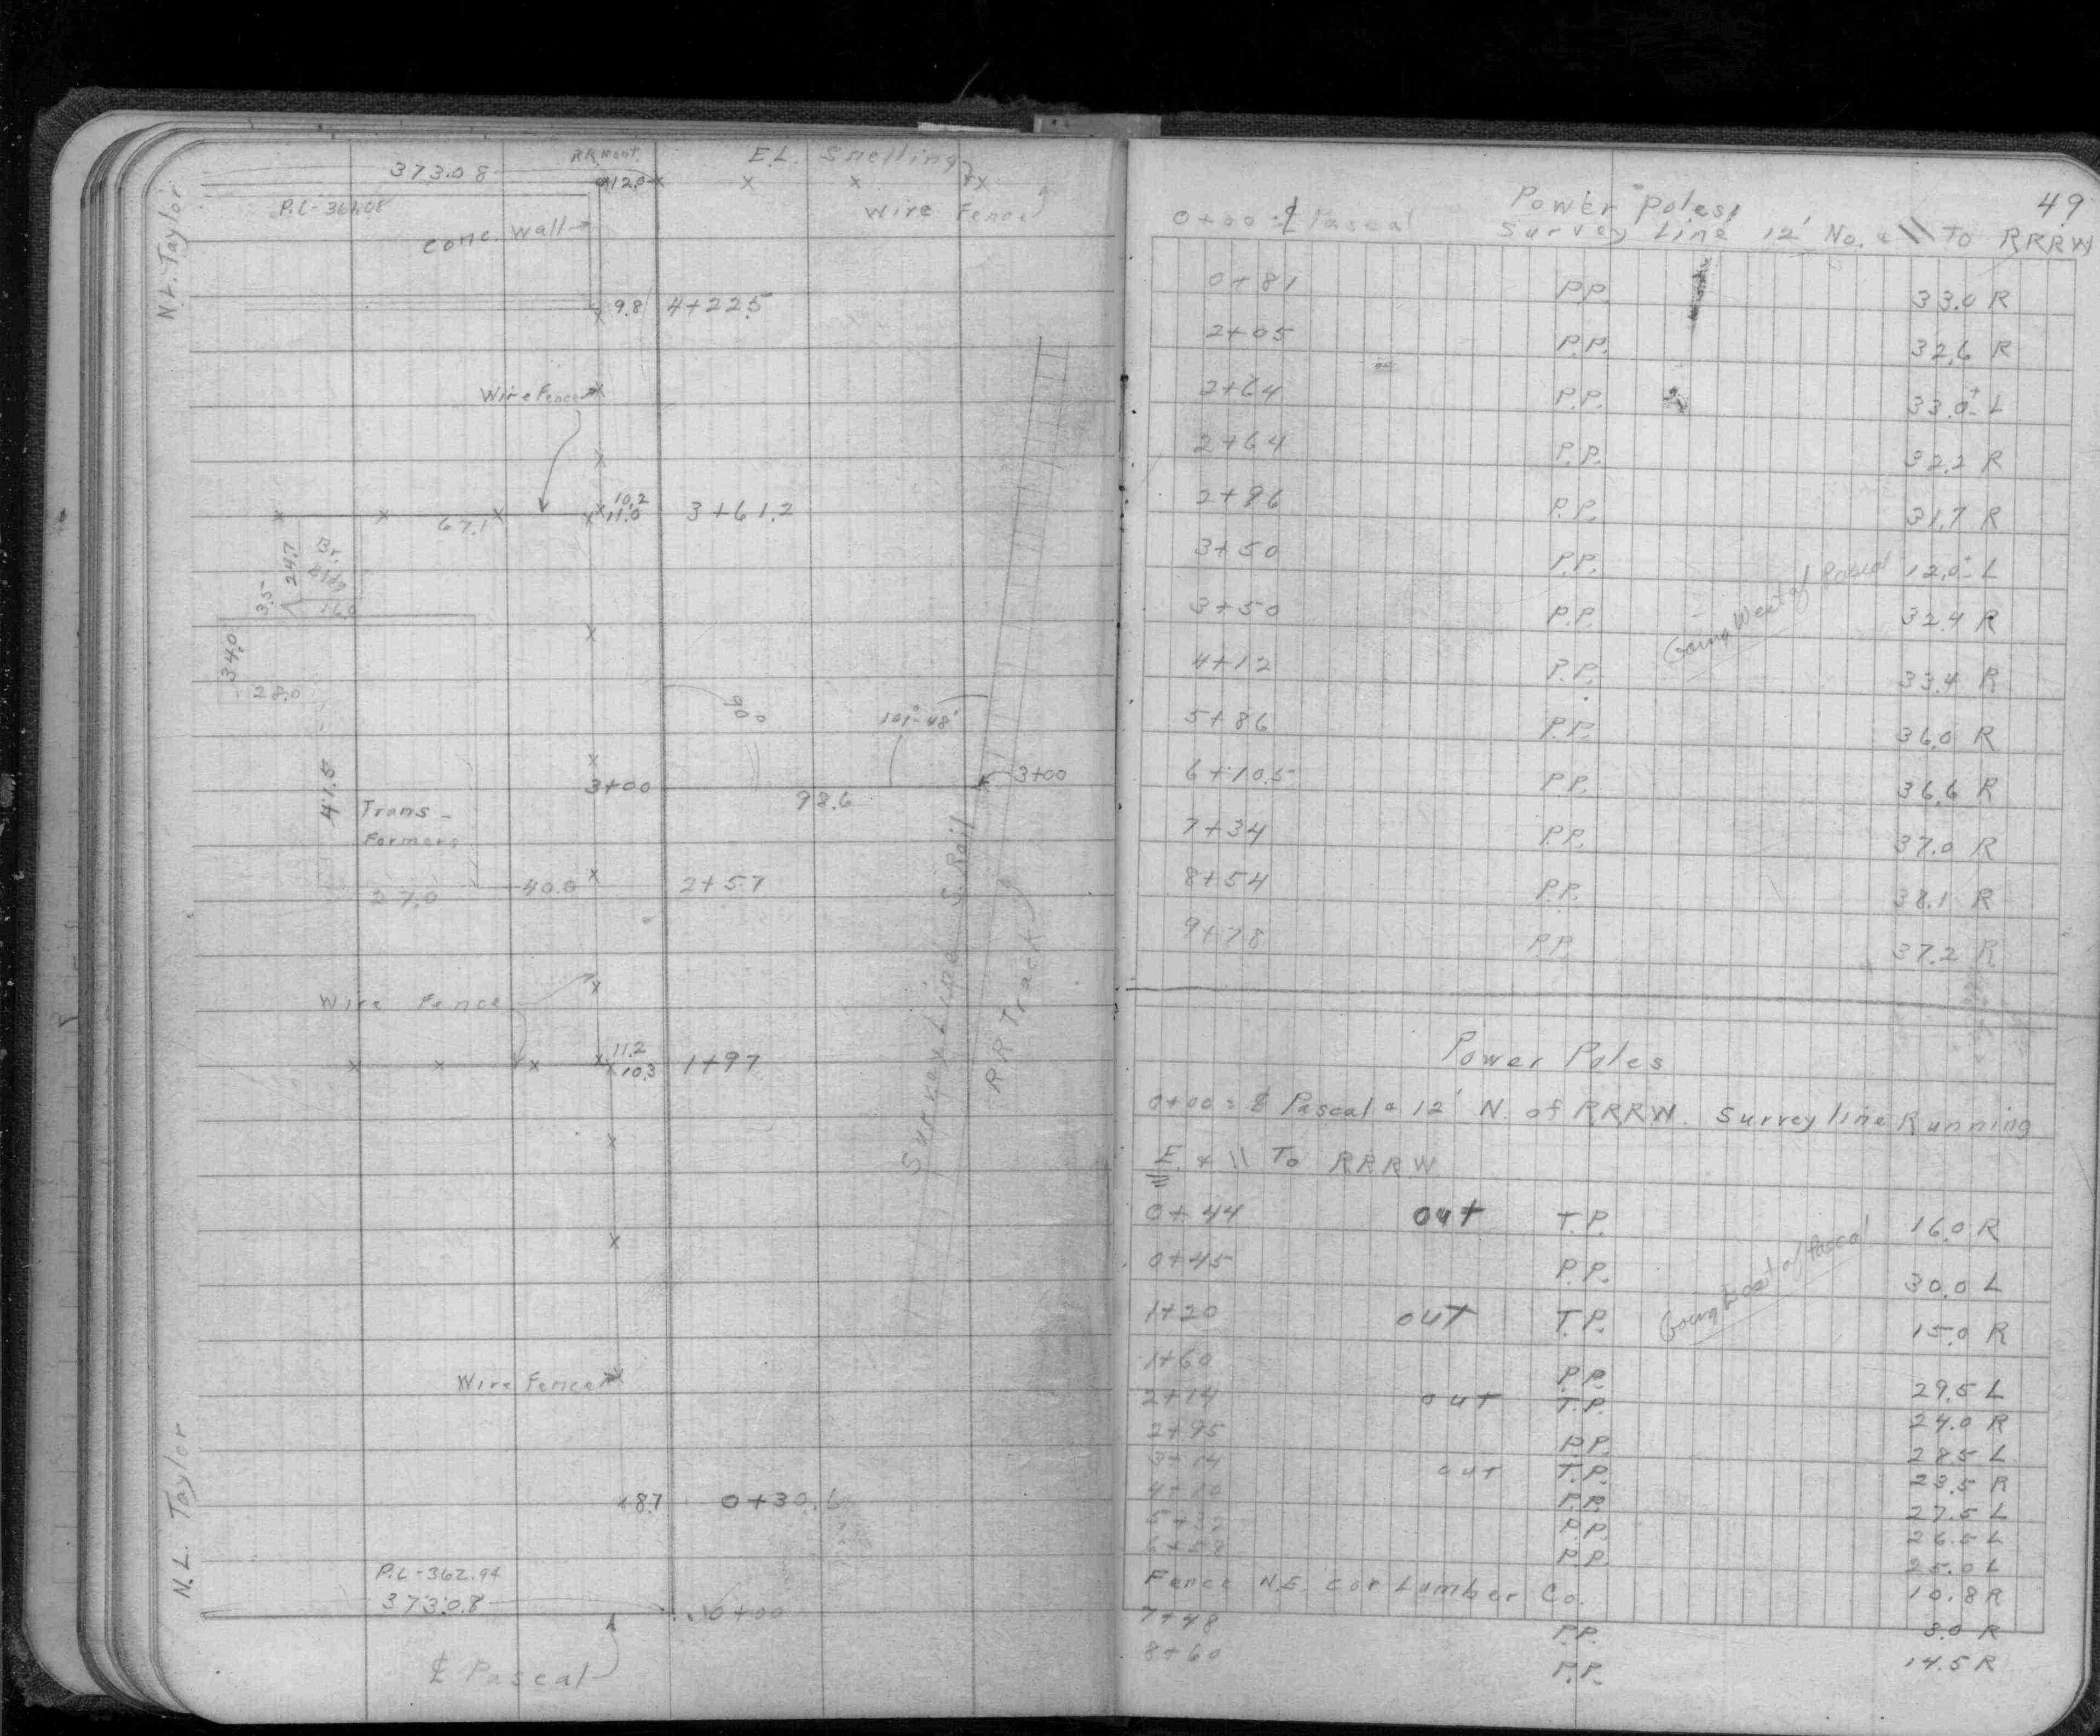 373.08 RR Mont. 12.0 E.L. Snelling
P.L - 364.08 Wire Fence
N.L. Taylor
conc. wall
9.8 4+22.5
Wire Fence
10.2
67.1 11.0 3+61.2
24.7 Br. Bldg
3.5 16.0
34.0
28.0
90° 00' 101°-48'
3+00 98.6 3+00
41.5
Trans-
Formers
27.0 40.0 2+57
Survey Line S. Rail
RR Track
Wire Fence
11.2
10.3 1+97
Wire Fence
8.7 0+30.6
N.L. Taylor
P.L - 362.94
373.08 0+00
℄ Pascal
49
Power Poles
0+00 = ℄ Pascal Survey Line 12' No. & \\ To RRRW
0+81 P.P. 33.0 R
2+05 P.P. 32.6 R
2+64 P.P. 33.0± L
2+64 P.P. 32.2 R
2+96 P.P. 31.7 R
3+50 P.P. 12.0± L
3+50 P.P. 32.4 R
Going West of Pascal
4+12 P.P. 33.4 R
5+86 P.P. 36.0 R
6+10.5 P.P. 36.6 R
7+34 P.P. 37.0 R
8+54 P.P. 38.1 R
9+78 P.P. 37.2 R
Power Poles
0+00 = ℄ Pascal & 12' N. of RRRW. Survey line Running
E. & \\ To RRRW
0+44 out T.P. 16.0 R
0+45 P.P. 30.0 L
Going East of Pascal
1+20 out T.P. 15.0 R
1+60 P.P. 29.5 L
2+14 out T.P. 24.0 R
2+95 P.P. 28.5 L
3+14 out T.P. 23.5 R
4+10 P.P. 27.5 L
P.P. 26.5 L
6+58 P.P. 25.0 L
Fence N.E. cor Lumber Co. 10.8 R
7+48 P.P. 8.0 R
8+60 P.P. 14.5 R